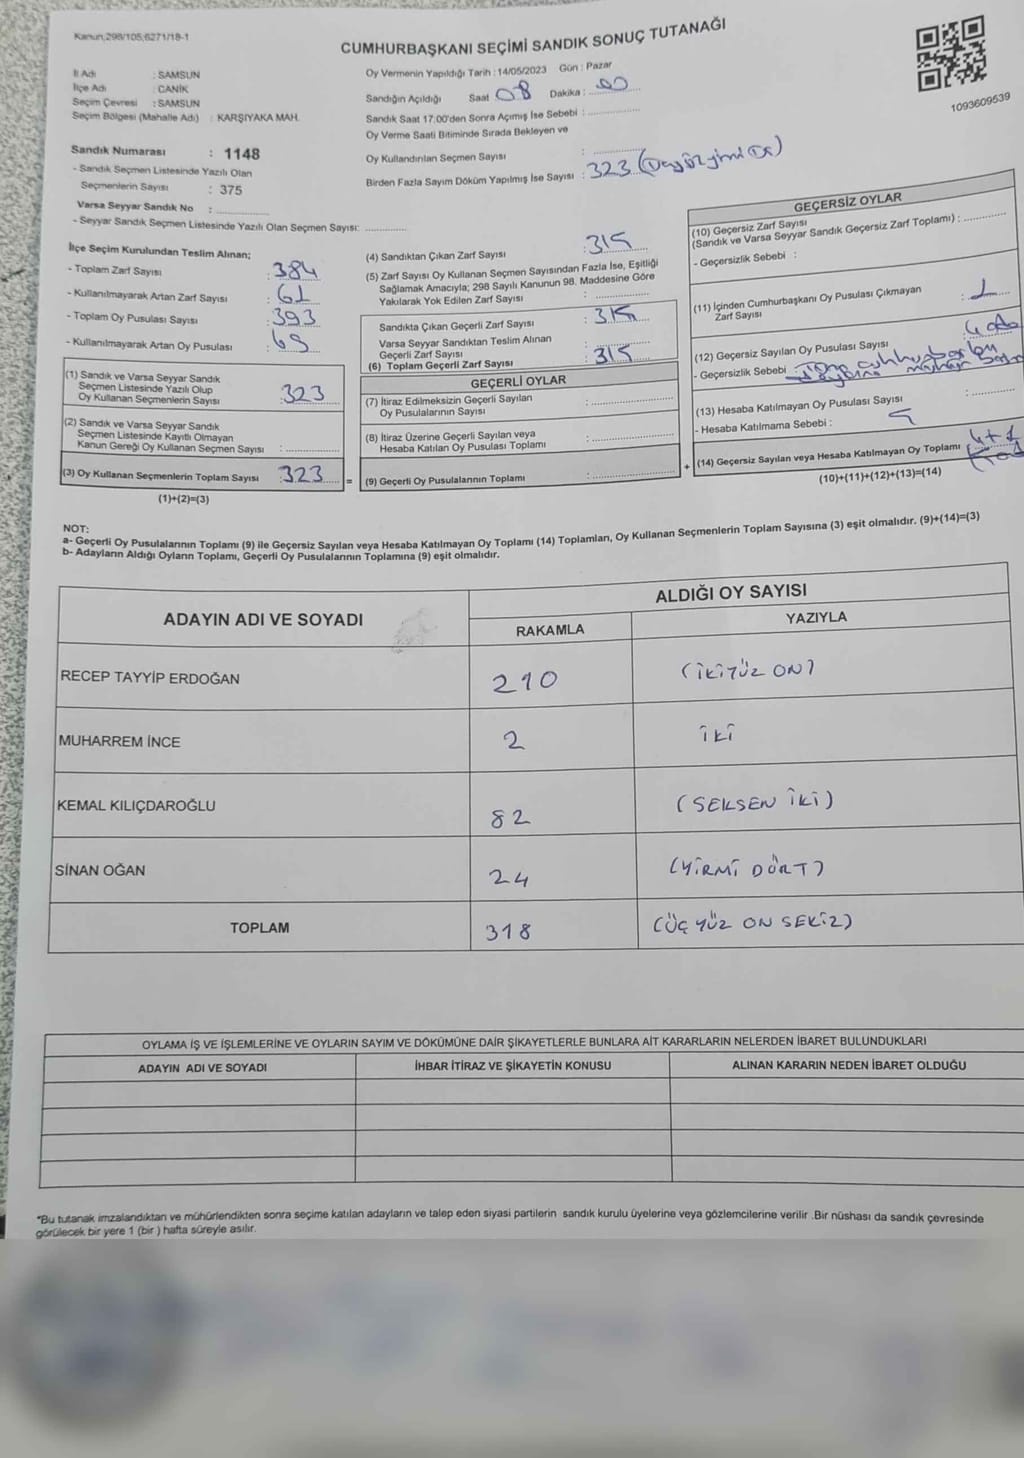 Kanun;298/105;6271/18-1
CUMHURBAŞKANI SEÇİMİ SANDIK SONUÇ TUTANAĞI
1093609539
İl Adı : SAMSUN
İlçe Adı : CANİK
Seçim Çevresi : SAMSUN
Seçim Bölgesi (Mahalle Adı) : KARŞIYAKA MAH.
Sandık Numarası : 1148
- Sandık Seçmen Listesinde Yazılı Olan
Seçmenlerin Sayısı : 375
Varsa Seyyar Sandık No :
- Seyyar Sandık Seçmen Listesinde Yazılı Olan Seçmen Sayısı:
Oy Vermenin Yapıldığı Tarih : 14/05/2023 Gün : Pazar
Sandığın Açıldığı Saat 08 Dakika : 00
Sandık Saat 17:00'den Sonra Açımış İse Sebebi :
Oy Verme Saati Bitiminde Sırada Bekleyen ve
Oy Kullandırılan Seçmen Sayısı :
Birden Fazla Sayım Döküm Yapılmış İse Sayısı : 323
İlçe Seçim Kurulundan Teslim Alınan;
- Toplam Zarf Sayısı : 384
- Kullanılmayarak Artan Zarf Sayısı : 61
- Toplam Oy Pusulası Sayısı : 393
- Kullanılmayarak Artan Oy Pusulası : 69
(1) Sandık ve Varsa Seyyar Sandık
Seçmen Listesinde Yazılı Olup
Oy Kullanan Seçmenlerin Sayısı : 323
(2) Sandık ve Varsa Seyyar Sandık
Seçmen Listesinde Kayıtlı Olmayan
Kanun Gereği Oy Kullanan Seçmen Sayısı :
(3) Oy Kullanan Seçmenlerin Toplam Sayısı : 323 =
(1)+(2)=(3)
(4) Sandıktan Çıkan Zarf Sayısı : 315
(5) Zarf Sayısı Oy Kullanan Seçmen Sayısından Fazla İse, Eşitliği
Sağlamak Amacıyla; 298 Sayılı Kanunun 98. Maddesine Göre
Yakılarak Yok Edilen Zarf Sayısı :
Sandıkta Çıkan Geçerli Zarf Sayısı : 315
Varsa Seyyar Sandıktan Teslim Alınan
Geçerli Zarf Sayısı :
(6) Toplam Geçerli Zarf Sayısı : 315
GEÇERLİ OYLAR
(7) İtiraz Edilmeksizin Geçerli Sayılan
Oy Pusulalarının Sayısı :
(8) İtiraz Üzerine Geçerli Sayılan veya
Hesaba Katılan Oy Pusulası Toplamı :
(9) Geçerli Oy Pusulalarının Toplamı : +
GEÇERSİZ OYLAR
(10) Geçersiz Zarf Sayısı
(Sandık ve Varsa Seyyar Sandık Geçersiz Zarf Toplamı) :
- Geçersizlik Sebebi :
(11) İçinden Cumhurbaşkanı Oy Pusulası Çıkmayan
Zarf Sayısı : 1
(12) Geçersiz Sayılan Oy Pusulası Sayısı : 4
- Geçersizlik Sebebi :
(13) Hesaba Katılmayan Oy Pusulası Sayısı :
- Hesaba Katılmama Sebebi : 5
(14) Geçersiz Sayılan veya Hesaba Katılmayan Oy Toplamı 4+1
(10)+(11)+(12)+(13)=(14)
NOT:
a- Geçerli Oy Pusulalarının Toplamı (9) ile Geçersiz Sayılan veya Hesaba Katılmayan Oy Toplamı (14) Toplamları, Oy Kullanan Seçmenlerin Toplam Sayısına (3) eşit olmalıdır. (9)+(14)=(3)
b- Adayların Aldığı Oyların Toplamı, Geçerli Oy Pusulalarının Toplamına (9) eşit olmalıdır.
ADAYIN ADI VE SOYADI ALDIĞI OY SAYISI
RAKAMLA YAZIYLA
RECEP TAYYİP ERDOĞAN 210 (İKİYÜZ ON)
MUHARREM İNCE 2 İKİ
KEMAL KILIÇDAROĞLU 82 (SEKSEN İKİ)
SİNAN OĞAN 24 (YİRMİ DÖRT)
TOPLAM 318 (ÜÇ YÜZ ON SEKİZ)
OYLAMA İŞ VE İŞLEMLERİNE VE OYLARIN SAYIM VE DÖKÜMÜNE DAİR ŞİKAYETLERLE BUNLARA AİT KARARLARIN NELERDEN İBARET BULUNDUKLARI
ADAYIN ADI VE SOYADI İHBAR İTİRAZ VE ŞİKAYETİN KONUSU ALINAN KARARIN NEDEN İBARET OLDUĞU
*Bu tutanak imzalandıktan ve mühürlendikten sonra seçime katılan adayların ve talep eden siyasi partilerin sandık kurulu üyelerine veya gözlemcilerine verilir .Bir nüshası da sandık çevresinde
görülecek bir yere 1 (bir ) hafta süreyle asılır.